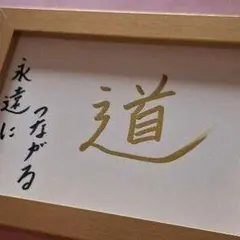 道
永遠に
つながる